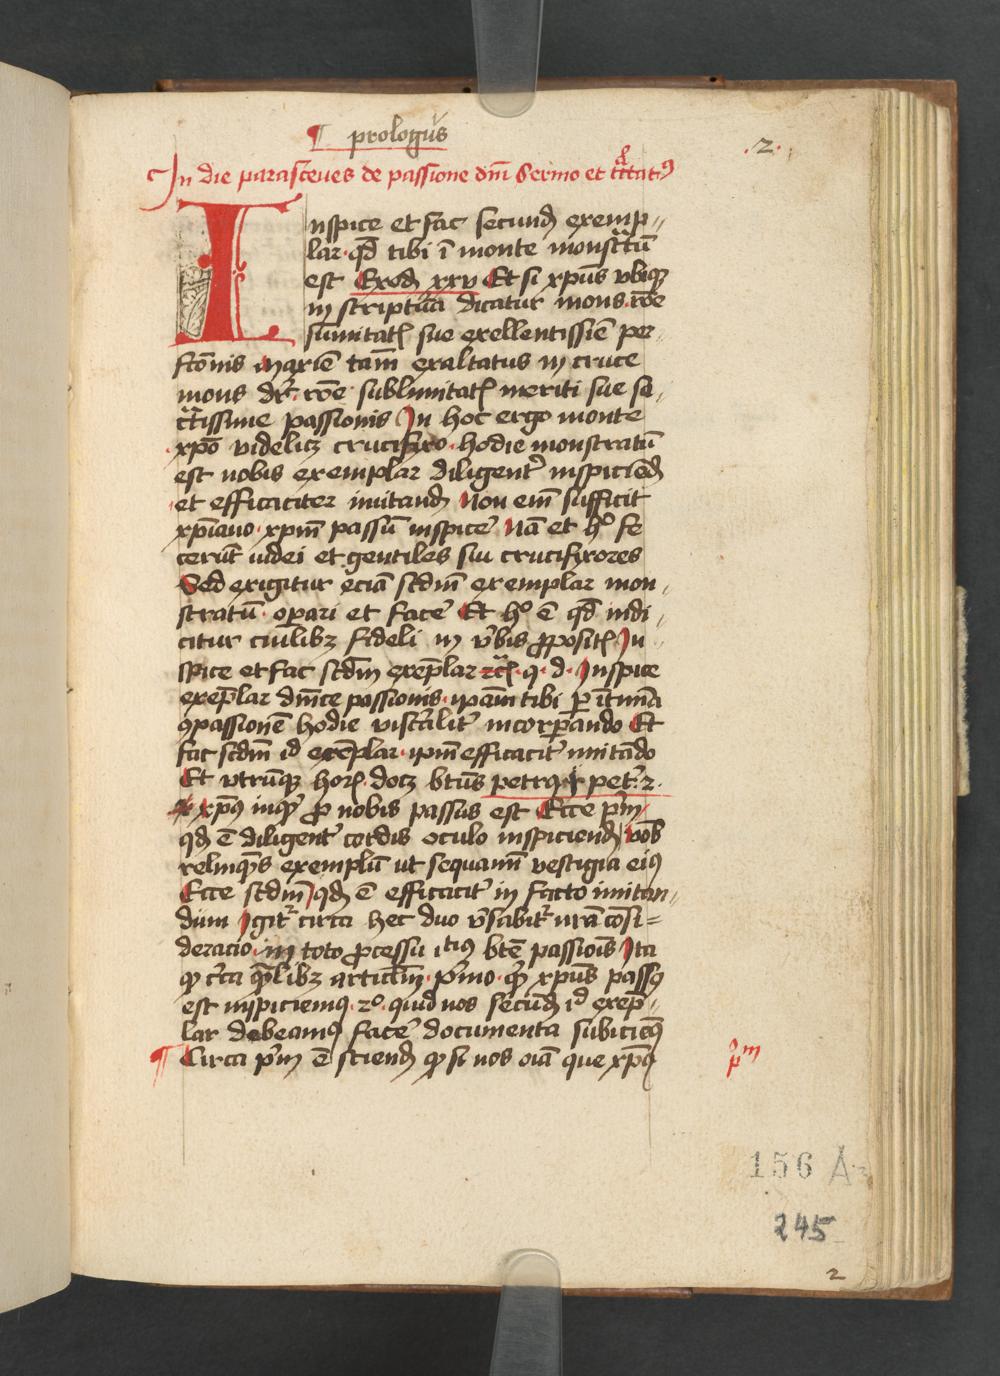 ¶ prologus
.2.
In die parasceues de passione dn̄i Sermo et tc̄tatꝰ
Inspice et fac secundꝫ exemp〃
lar · qd̄ tibi ī monte monstᵃtū
est Exodꝫ xxv Et si xp̄us vbiqꝫ
in scriptura dicatur mons · rōe
sūmitatꝭ sue exellentissīe per〃
fcōnis maxīe tam̄ exaltatus in cruce
mons dr̄ · rōe sublimitatꝭ meriti sue sa〃
cᵃtissime passionis In hoc ergo monte
xp̄o videlicꝫ crucifixo · hodie monstratū
est nobis exemplar diligentˀ inspiciēdꝫ
et efficaciter imitandꝫ Non em̄ sufficit
xp̄iano · xp̄m passū inspiceˀ Nā et hᵒ fe
cerūt iudei et gentiles sui crucifixores
Sed exigitur eciā scdm̄ exemplar mon〃
stratū · oꝑari et faceˀ Et hᵒ ē qd̄ indi〃
citur cuilibꝫ fideli in v̄bis ꝓpositꝭ In〃
spice et fac scdm̄ exēplar · q · d · Inspice
exēplar dn̄ice passionis · ip̄am tibi ꝑ īt̄imā
ꝯpassionē hodie viscˀalitˀ incorꝑando Et
fac scdm̄ id exēplar · ip̄m efficacitˀ imitādo
Et vtrūqꝫ horꝝ docꝫ btūs petrꝰ j petˀ · 2 ·
xp̄ꝰ inqͥ ꝓ nobis passus est Ecce pͥm
qdꝫ ē diligentˀ cordis oculo inspiciendꝫ vob̄
relinqͣs exemplū ut sequamī vestigia eiꝰ
Ecce scdm̄ qdꝫ ē efficacitˀ in facto imitan〃
dum Igitˀ circa hec duo v̄sabitˀ nr̄a cōsi=
deracio · in toto ꝓcessu itiꝰ btē passiōis Ita
ꝙ cˀca qͣlibꝫ articlm̄ · pͥmo · qͦ xp̄us passꝰ
est inspiciemꝰ · 2ᵒ · quid nos secūdꝫ id exēp〃
lar debeamꝰ faceˀ documenta subiciēꝰ
¶ Circa pͥm ē sciendꝫ ꝙ si nos oīa que xp̄ꝰ
pᵐ
156 A
245
2